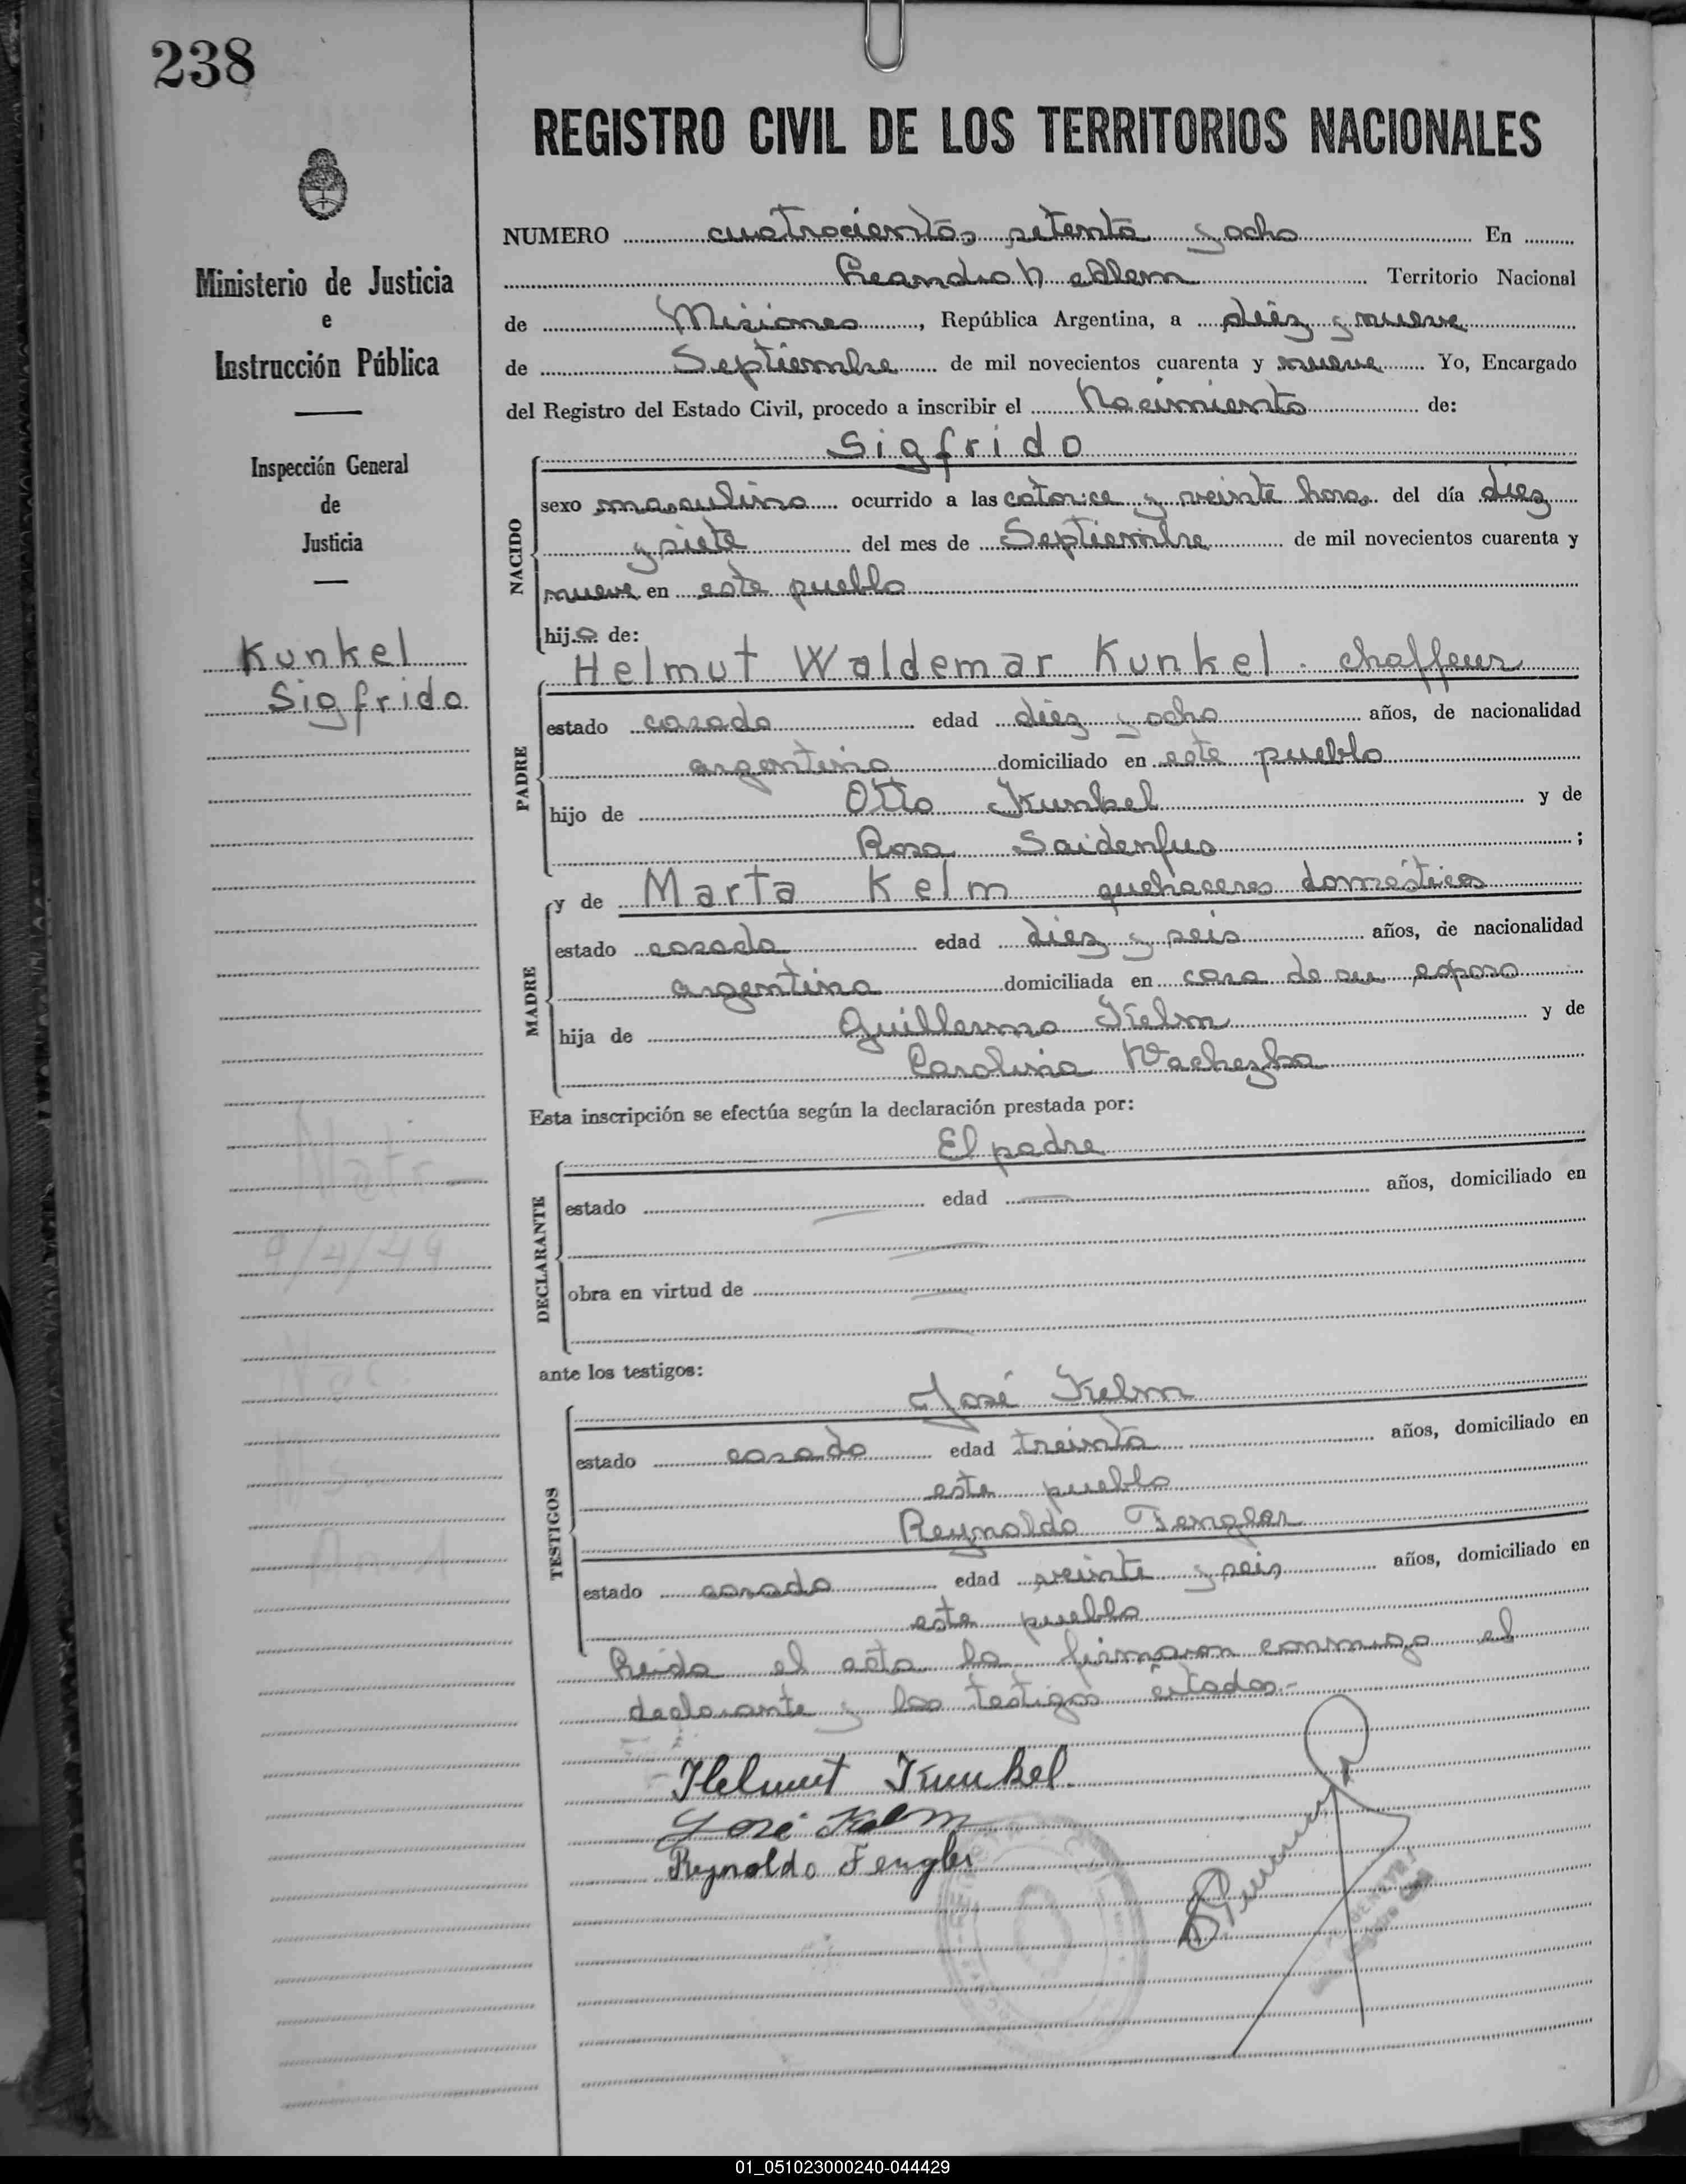 238
REGISTRO CIVIL DE LOS TERRITORIOS NACIONALES
Ministerio de Justicia
e
Instrucción Pública
Inspección General
de
Justicia
Kunkel
Sigfrido
NUMERO cuatrocientos setenta y ocho En
Leandro N. Alem Territorio Nacional
de Misiones, República Argentina, a diéz y nueve
de Septiembre de mil novecientos cuarenta y nueve Yo, Encargado
del Registro del Estado Civil, procedo a inscribir el Nacimiento de:
Sigfrido
NACIDO
sexo masculino ocurrido a las catorce y veinte horas del día diez
y siete del mes de Septiembre de mil novecientos cuarenta y
nueve en este pueblo
hijo de:
Helmut Waldemar Kunkel. chaffeur
PADRE
estado casado edad diéz y ocho años, de nacionalidad
argentino domiciliado en este pueblo
hijo de Otto Kunkel y de
Rosa Saidenfus ;
MADRE
y de Marta Kelm quehaceres domésticos
estado casada edad diez y seis años, de nacionalidad
argentina domiciliada en casa de su esposo
hija de Guillermo Kelm y de
Carolina
Esta inscripción se efectúa según la declaración prestada por:
El padre
DECLARANTE
estado edad años, domiciliado en
obra en virtud de
ante los testigos:
TESTIGOS
José Kelm
estado casado edad treinta años, domiciliado en
este pueblo
Reynoldo Fengler
estado casado edad veinte y seis años, domiciliado en
este pueblo
Leida el acta la firmaron conmigo el
declarante y los testigos citados.-
Helmut Kunkel.
José Kelm
Reynoldo Fengler
01_051023000240-044429